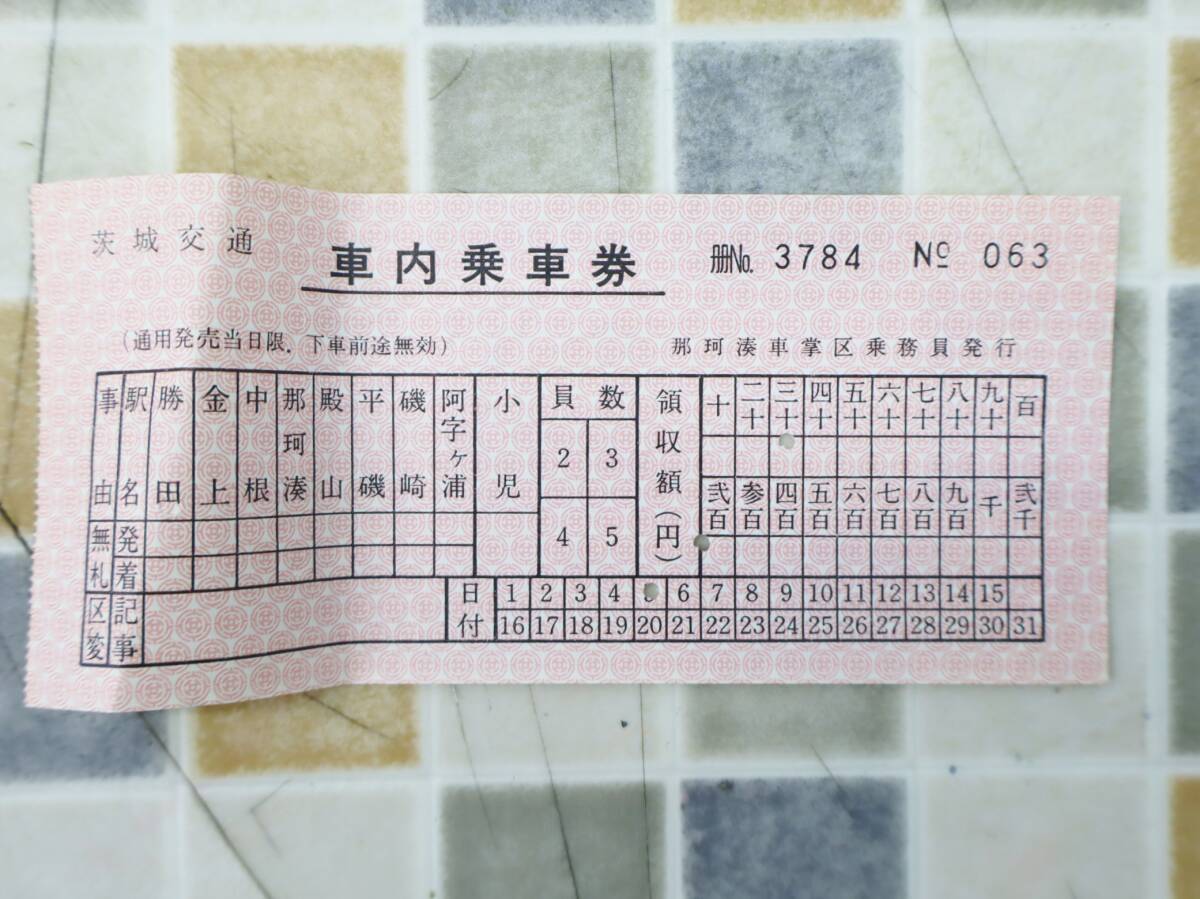 茨城交通 車内乗車券 冊No. 3784 No 063
(通用発売当日限. 下車前途無効) 那珂湊車掌区乗務員発行
事由 駅名 勝田 金上 中根 那珂湊 殿山 平磯 磯崎 阿字ヶ浦 小児 員数 領収額(円) 十 二十 三十 四十 五十 六十 七十 八十 九十 百
2 3
弐百 参百 四百 五百 六百 七百 八百 九百 千 弐千
無札 発 4 5
着
区変 記事 日付 1 2 3 4 6 7 8 9 10 11 12 13 14 15
16 17 18 19 20 21 22 23 24 25 26 27 28 29 30 31